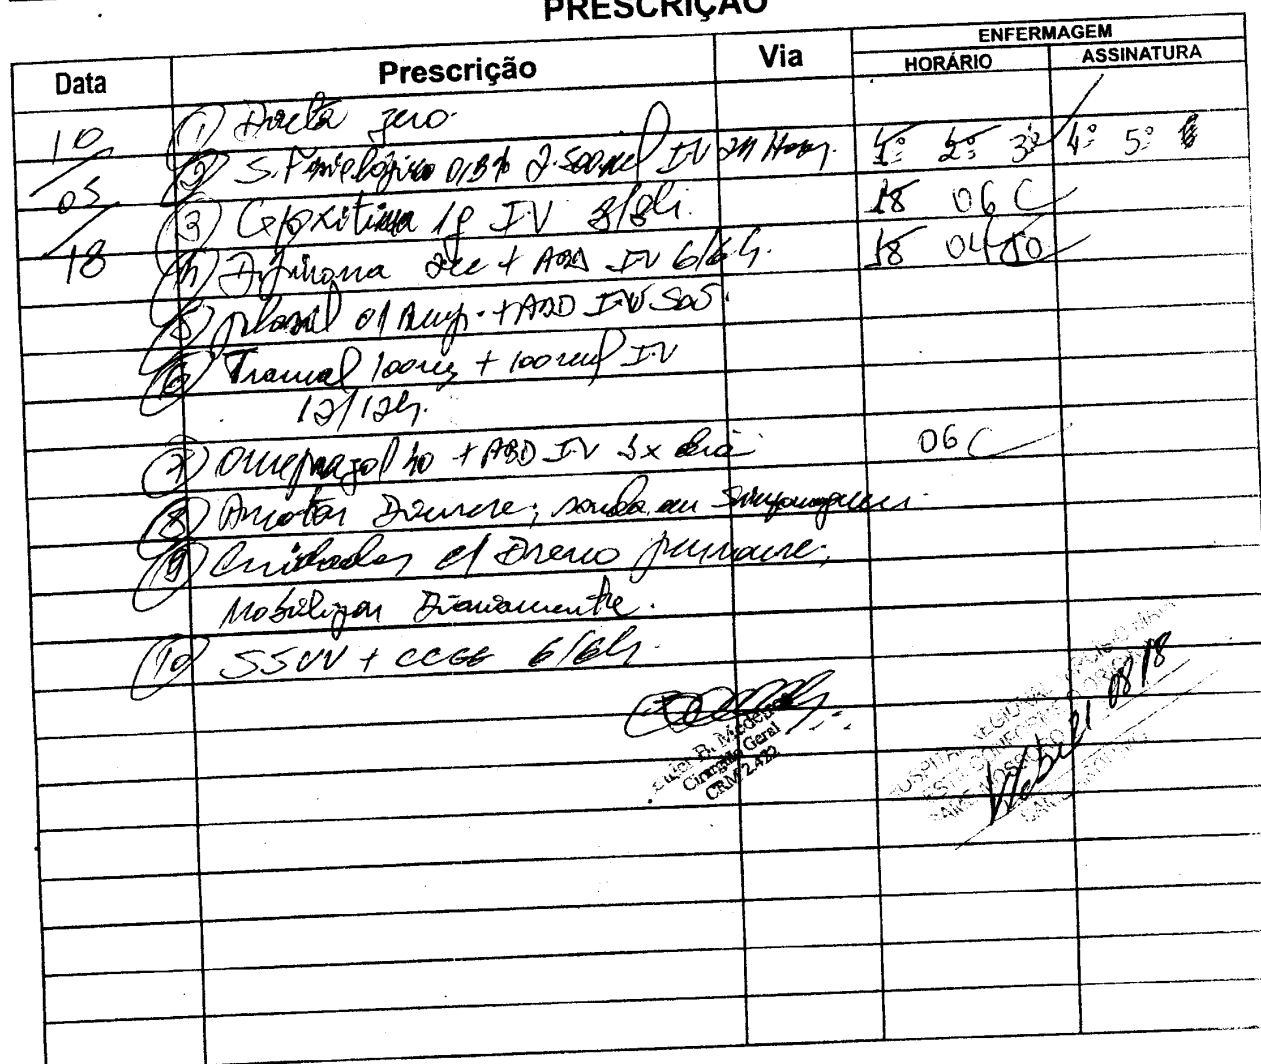 PRESCRIÇÃO
Data Prescrição Via ENFERMAGEM
HORÁRIO ASSINATURA
10/05/18
1) Dieta zero.
2) S. Fisiológico 0,9% 2.500ml IV 24 Horas. 1º 2º 3º 4º 5º
3) Cefoxitina 1g IV 8/8h. 18 06 C
4) Dipirona 2cc + ABD IV 6/6h. 18 04
5) plasil 01 Amp. + ABD IV SOS.
6) Tramal 100mg + 100ml IV
12/12h.
7) Omeprazol 40 + ABD IV 1x dia 06 C
8) Anotar Diurese; sonda em
9) Cuidados c/ Dreno penrose;
Mobilizar Diariamente.
10) SSVV + CCGG 6/6h.
R. Medeiros
Cirurgião Geral
CRM 2.422
HOSPITAL REGIONAL
08 18